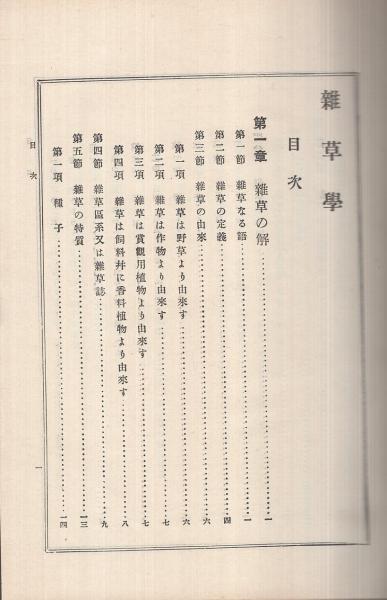 雜草學
目次
第一章 雜草の解……一
第一節 雜草なる語……一
第二節 雜草の定義……四
第三節 雜草の由來……六
第一項 雜草は野草より由來す……六
第二項 雜草は作物より由來す……七
第三項 雜草は賞觀用植物より由來す……七
第四項 雜草は飼料幷に香料植物より由來す……八
第四節 雜草區系又は雜草誌……九
第五節 雜草の特質……一三
第一項 種子……一四
目次
一